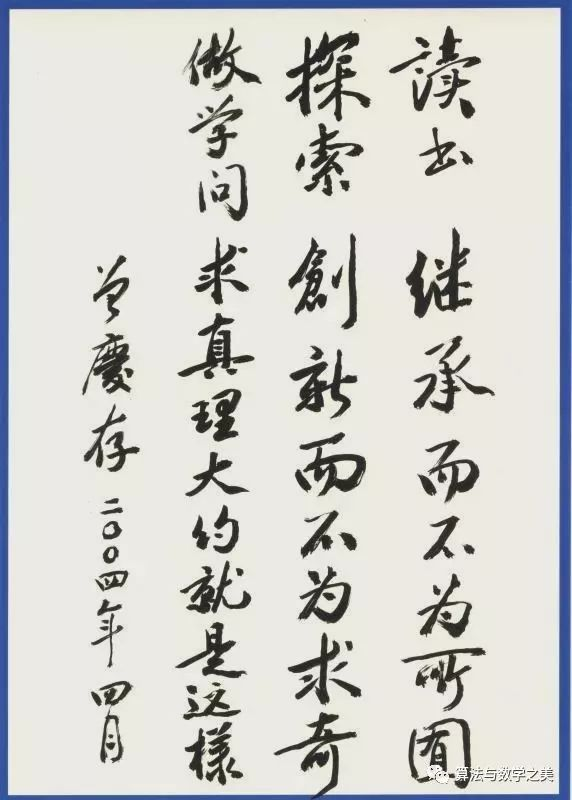 讀书 继承而不为所囿
探索 創新而不为求奇
做学问 求真理大约就是这樣
曾慶存 二00四年四月
算法与数学之美